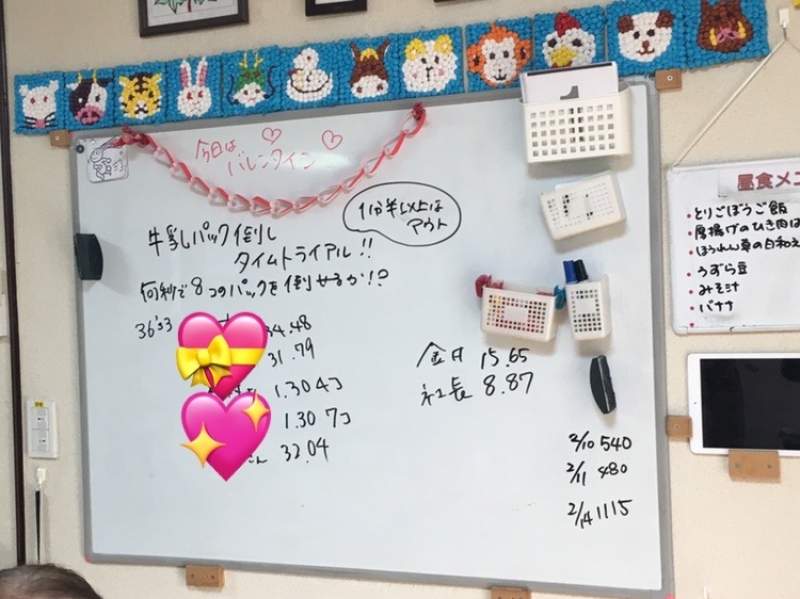 今日は
バレンタイン
1分半以上は
アウト
牛乳パック倒し
タイムトライアル!!
何秒で8つのパックを倒せるか!?
36"33
34.48
31.79
1.30 4コ
1.30 7コ
さん 32.04
金田 15.65
社長 8.87
2/10 540
2/11 480
2/14 1115
昼食メニ
・とりごぼうご飯
・厚揚げのひき肉は
・ほうれん草の白和え
・うずら豆
・みそ汁
・バナナ